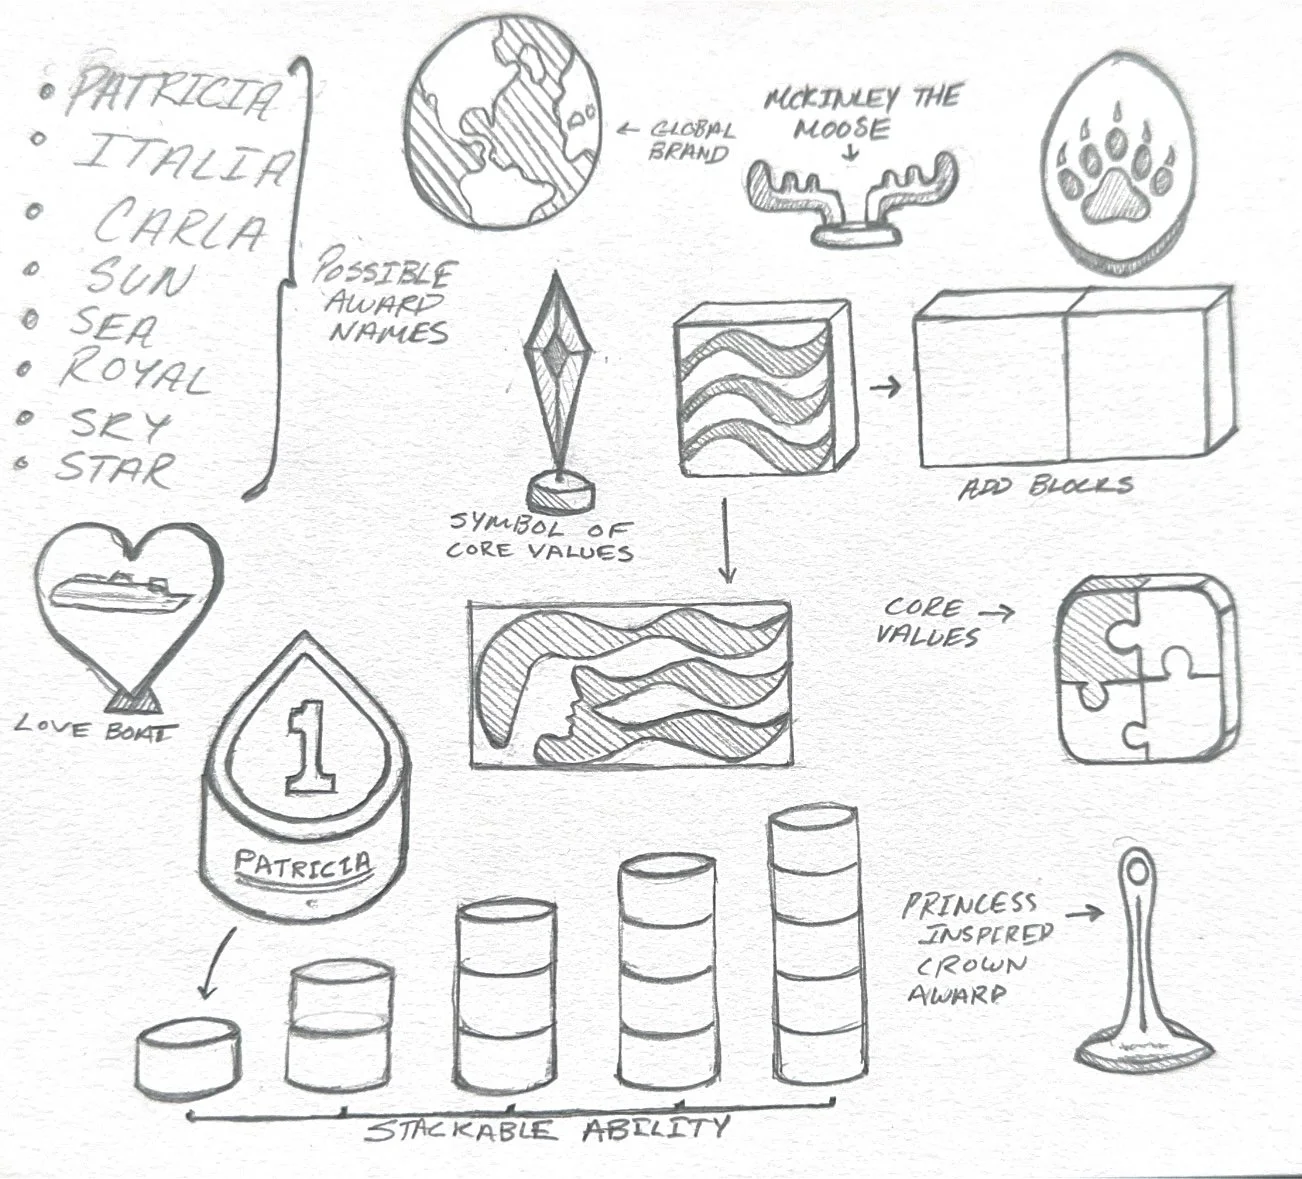 PATRICIA
ITALIA
CARLA
SUN
SEA
ROYAL
SKY
STAR
POSSIBLE
AWARD
NAMES
← GLOBAL
BRAND
MCKINLEY THE
MOOSE
SYMBOL OF
CORE VALUES
ADD BLOCKS
LOVE BOAT
CORE
VALUES
1
PATRICIA
PRINCESS
INSPIRED
CROWN
AWARD
STACKABLE ABILITY